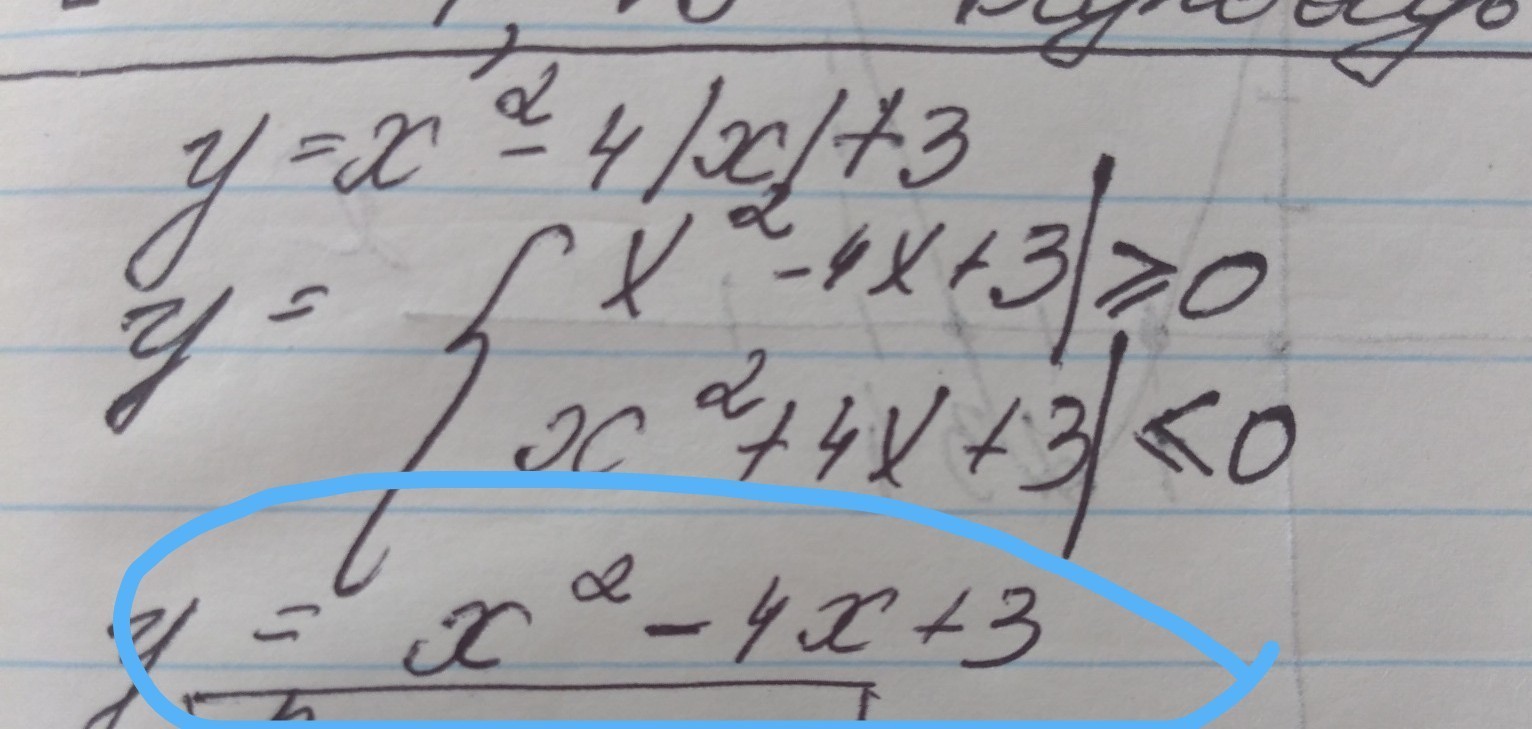 y = x² - 4|x| + 3
y = { x² - 4x + 3 | ≥ 0
x² + 4x + 3 | < 0
y = x² - 4x + 3